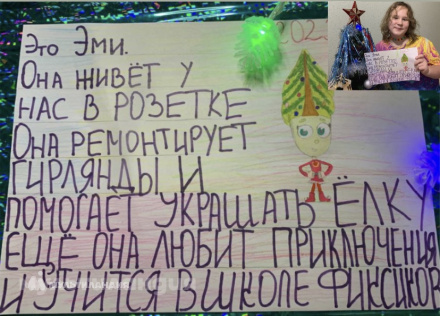 2023
Это Эми.
Она живёт у
нас в розетке
Она ремонтирует
гирлянды и
помогает украшать ёлку
ещё она любит приключения
и учится в школе фиксиков